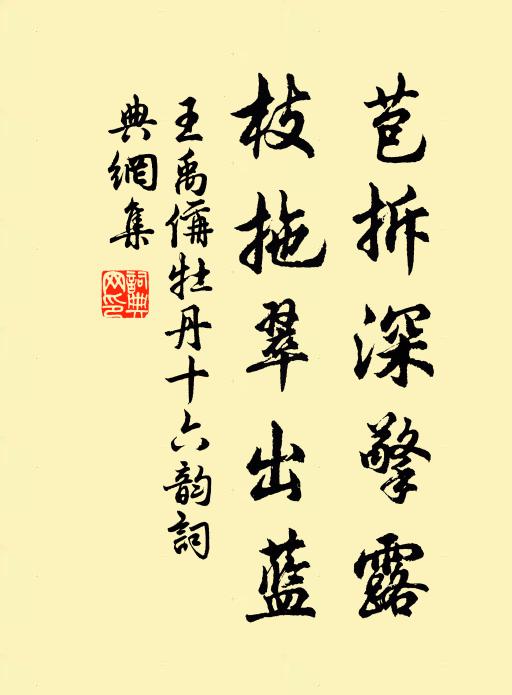 苞拆深擎露
枝拖翠出藍
王禹偁牡丹十六韵詞
典網集
詞典网印